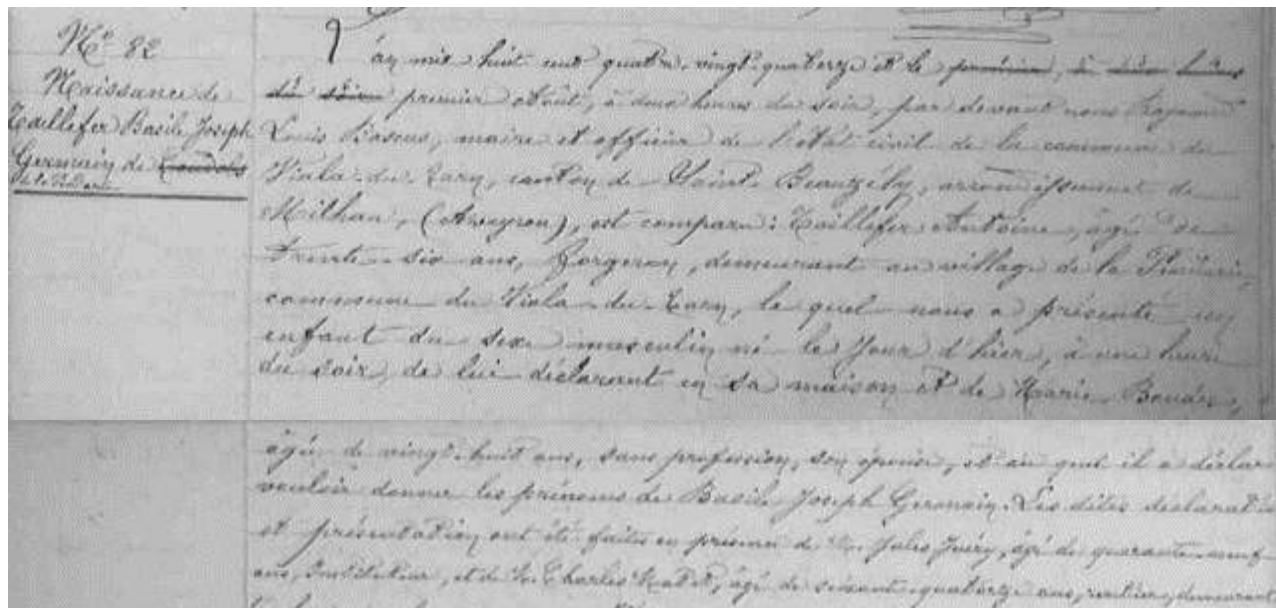 N° 82
Naissance de
Taillefer Basile Joseph
Germain de
L'an mil huit cent quatre-vingt-quatorze et le premier, à deux heures
du soir premier août, à deux heures du soir, par devant nous
Louis Bascus, maire et officier de l'état civil de la commune de
Viala-du-Tarn, canton de Saint-Beauzély, arrondissement de
Milhau, (Aveyron), est comparu: Taillefer Antoine, âgé de
trente-six ans, forgeron, demeurant au village de la
commune du Viala-du-Tarn, le quel nous a présenté un
enfant du sexe masculin né le jour d'hier, à une heure
du soir, de lui déclarant en sa maison et de Marie
âgée de vingt-huit ans, sans profession, son épouse, et au quel il a déclaré
vouloir donner les prénoms de Basile Joseph Germain. Les dites déclaration
et présentation ont été faites en présence de M. Jules Juéry, âgé de quarante-neuf
ans, Instituteur, et de M. Charles âgé de soixante-quatorze ans, rentier, demeurant